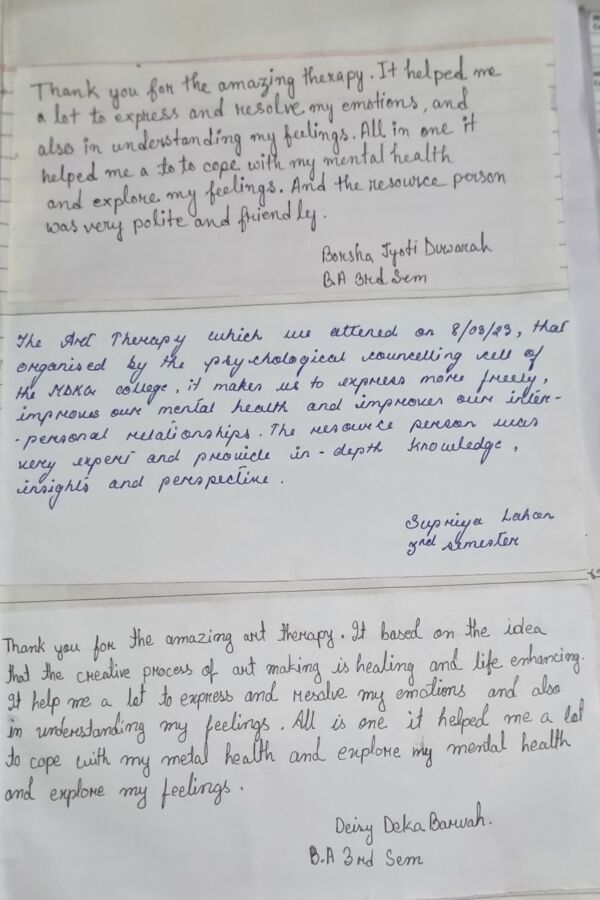 Thank you for the amazing therapy. It helped me
a lot to express and resolve my emotions, and
also in understanding my feelings. All in one it
helped me a to to cope with my mental health
and explore my feelings. And the resource person
was very polite and friendly.
Borsha Jyoti Duwarah
B.A 3rd Sem
The Art Therapy which we attened on 8/08/23, that
organised by the psychological councelling cell of
the MDKG college, it makes us to express more freely,
improves our mental health and improves our inter-
-personal relationships. The resource person was
very expert and provide in-depth knowledge,
insights and perspective.
Supriya Lahon
3rd semester
Thank you for the amazing art therapy. It based on the idea
that the creative process of art making is healing and life enhancing.
It help me a lot to express and resolve my emotions and also
in understanding my feelings. All is one it helped me a lot
to cope with my metal health and explore my mental health
and explore my feelings.
Deisy Deka Baruah.
B.A 3rd Sem